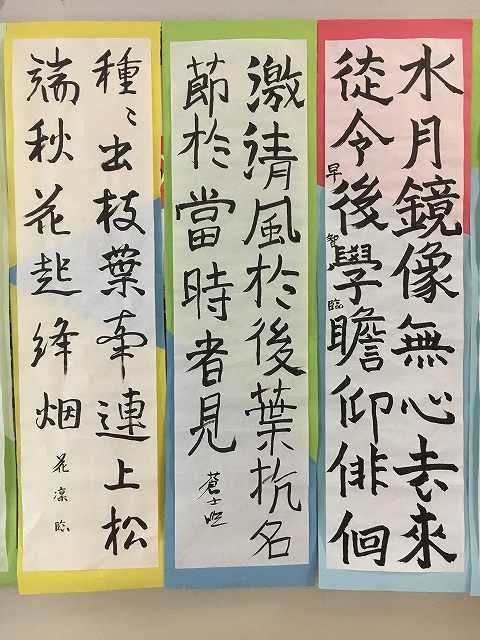 水月鏡像無心去來
徒令後學瞻仰俳佪
早智臨
激清風於後葉抗名
節於當時者見
蒼士臨
種〻出枝葉牽連上松
端秋花起絳烟
花凛臨